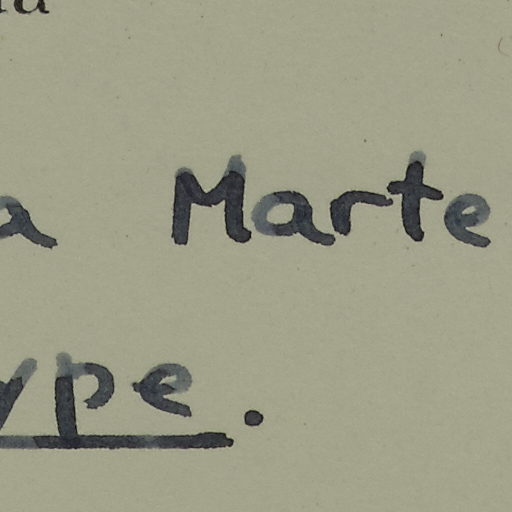 a Marte
ype.